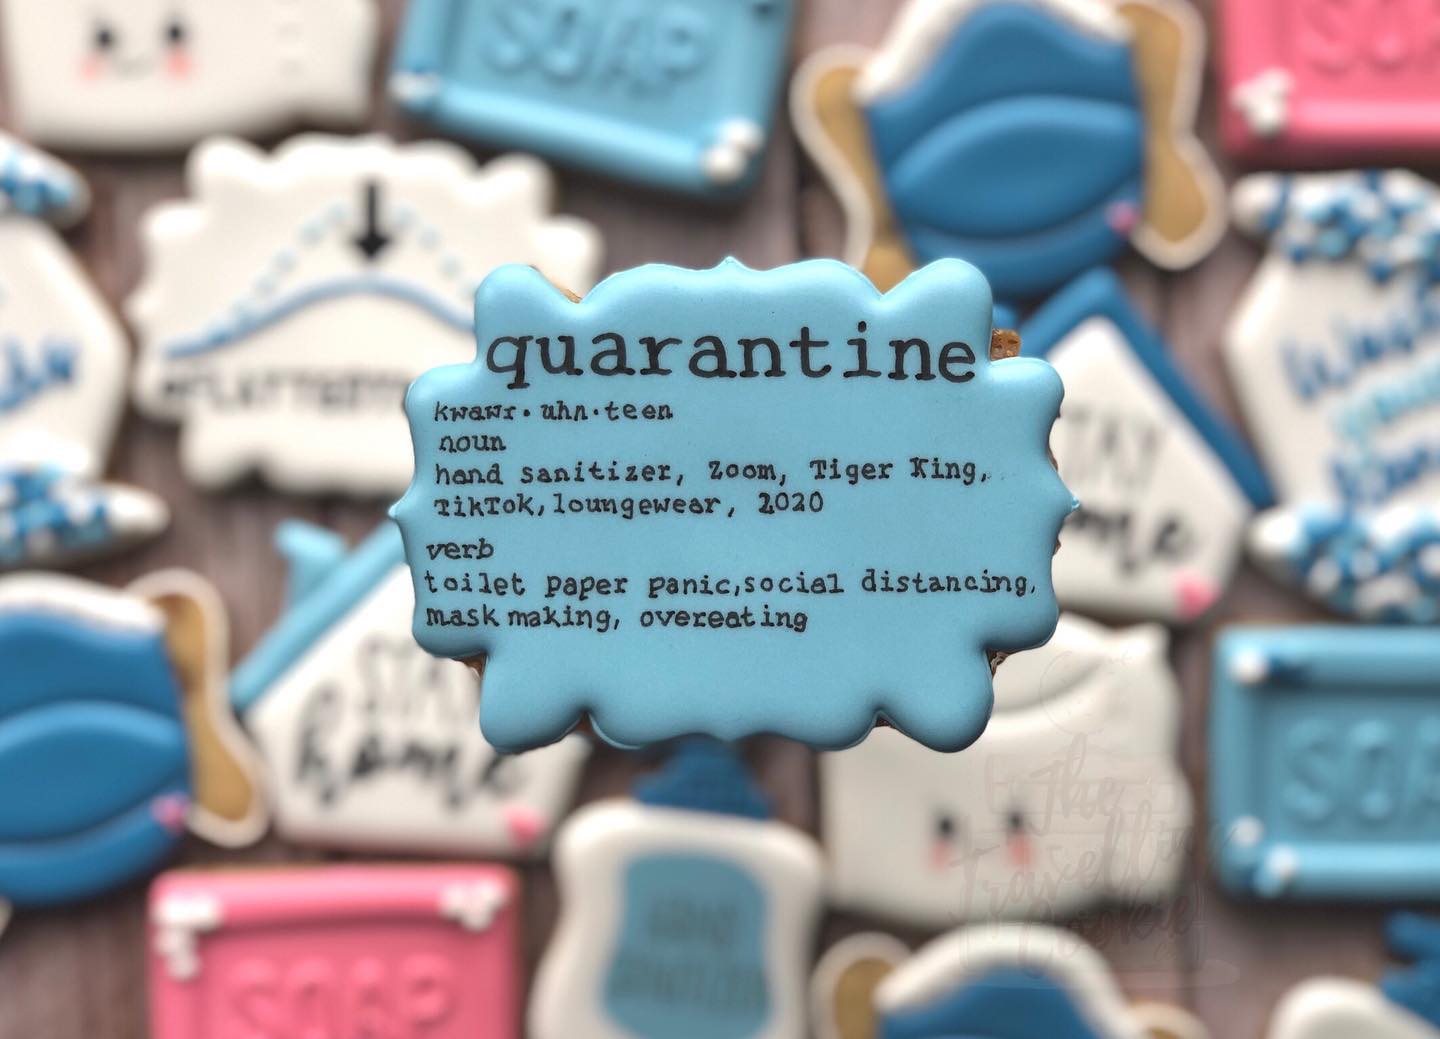 SOAP
SOAP
quarantine
kwawr·uhn·teen
noun
hand sanitizer, Zoom, Tiger King,
TikTok, loungewear, 2020
verb
toilet paper panic, social distancing,
mask making, overeating
STAY
home
SOAP
SOAP
The
Travelling
Cookie